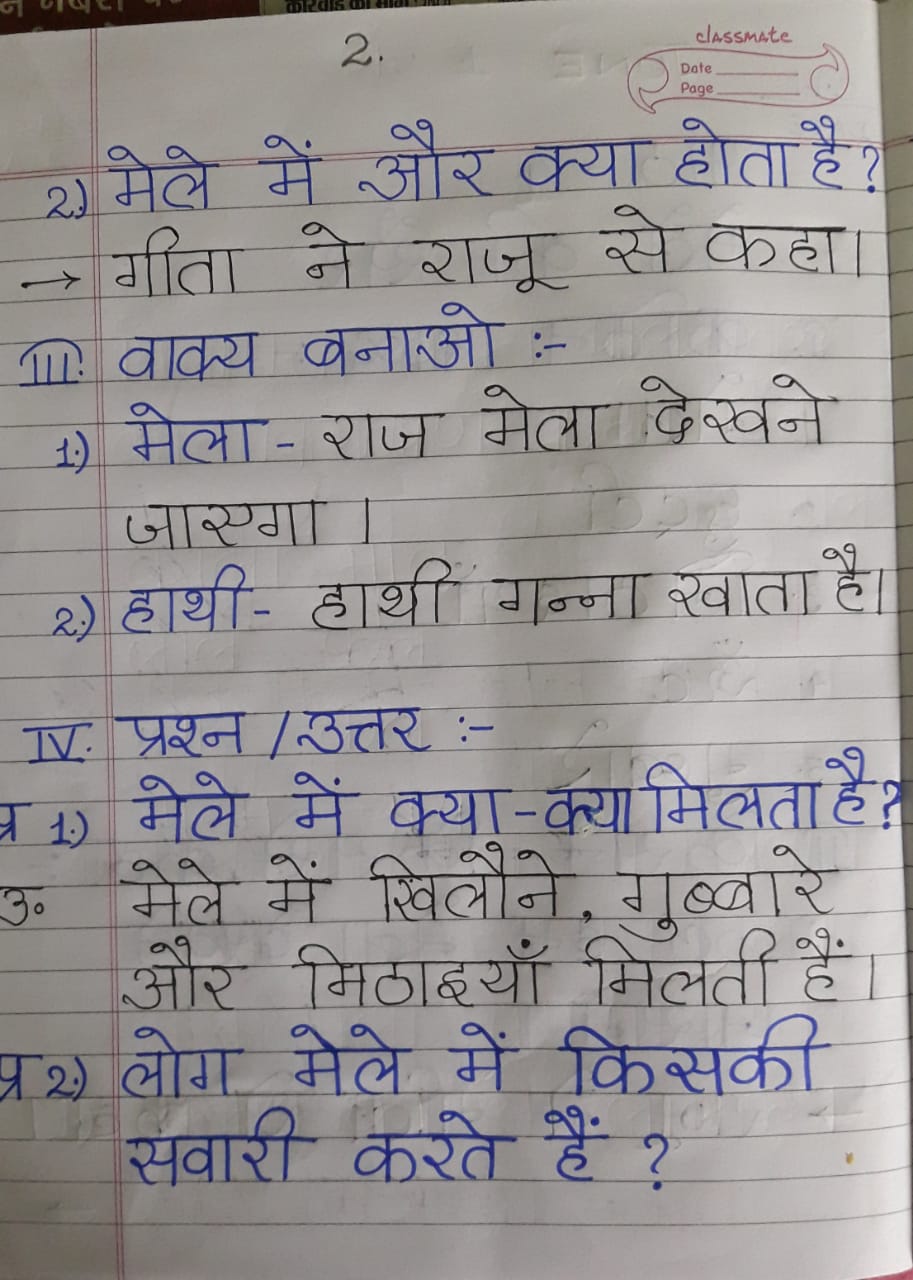 2.
classmate
Date
Page
2.) मेले में और क्या होता है?
→ गीता ने राजू से कहा।
III. वाक्य बनाओ :-
1.) मेला - राज मेला देखने
जाएगा ।
2.) हाथी - हाथी गन्ना खाता है।
IV. प्रश्न / उत्तर :-
प्र 1.) मेले में क्या - क्या मिलता है?
उ० मेले में खिलौने, गुब्बारे
और मिठाइयाँ मिलती हैं।
प्र 2.) लोग मेले में किसकी
सवारी करते हैं ?